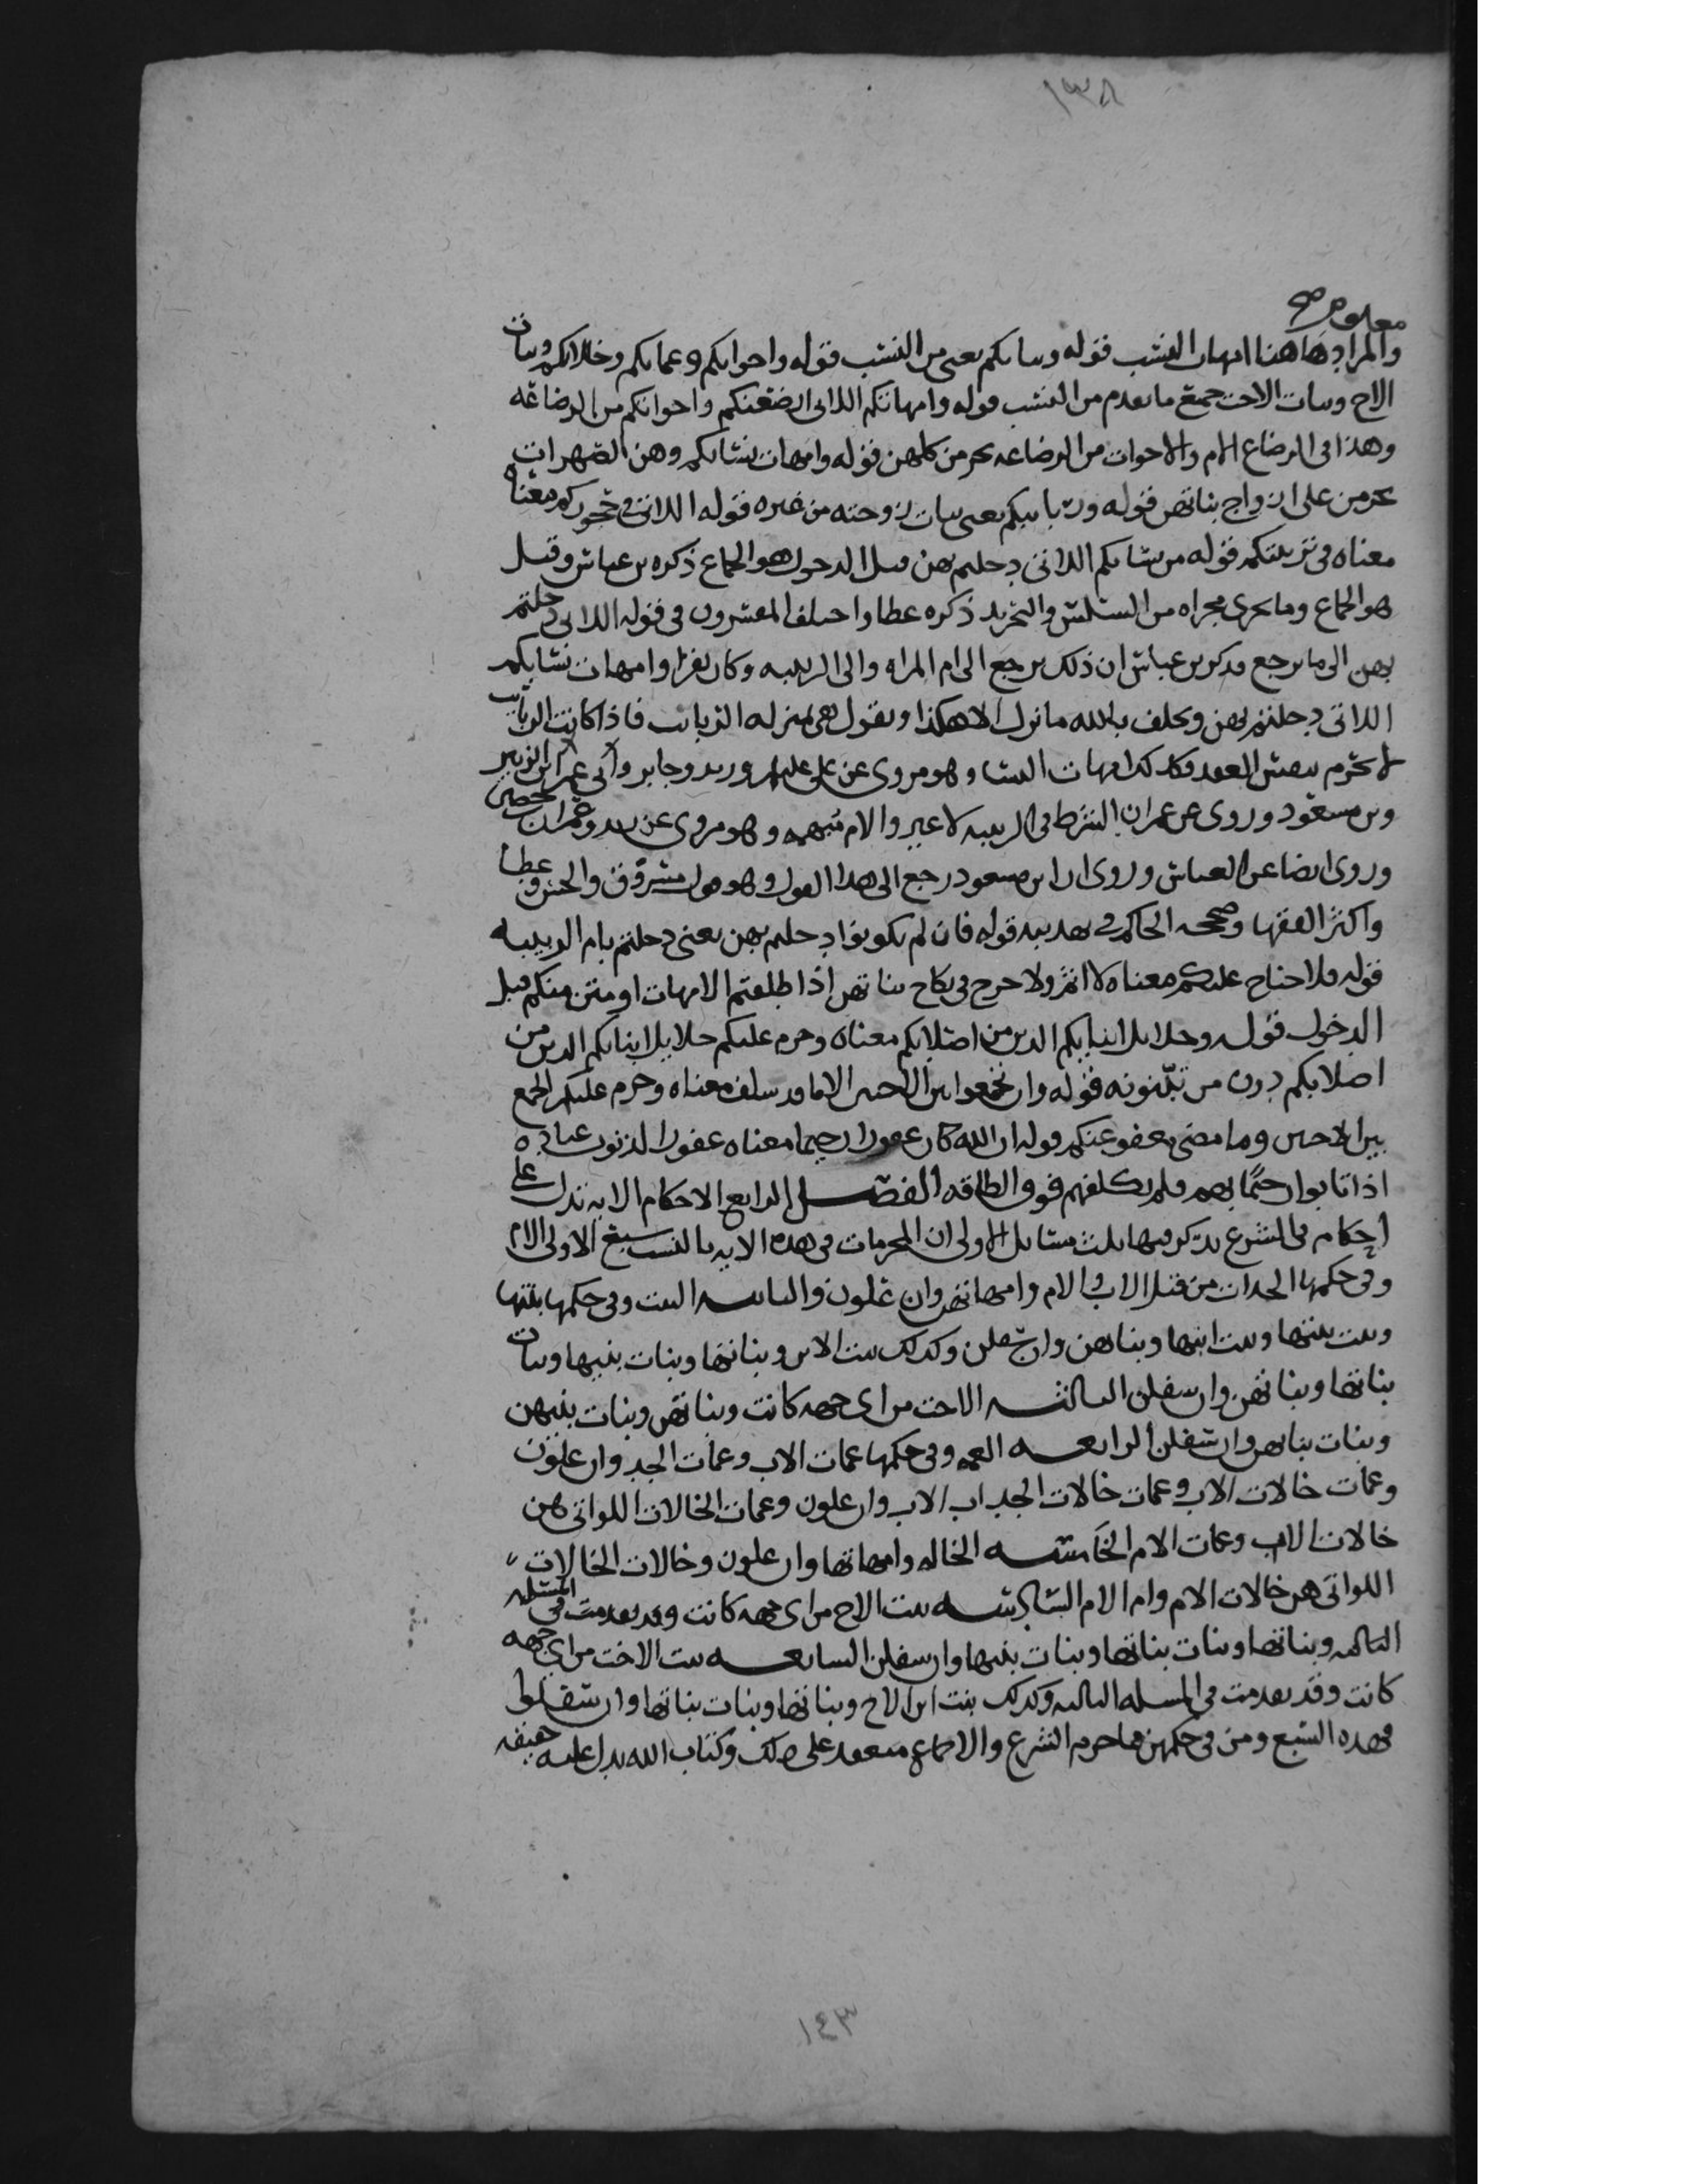 ١٣٨
معلوم صح
والمراد هاهنا امهات النسب قوله وبناتكم يعني من النسب قوله واخواتكم وعماتكم وخالاتكم وبنات
الاخ وبنات الاخت جميع ما تقدم من النسب قوله وامهاتكم اللاتي ارضعنكم واخواتكم من الرضاعه
وهذا في الرضاع الام والاخوات من الرضاعه يحرمن كلهن قوله وامهات نسائكم وهن الصهرات
يحرمن على ازواج بناتهن قوله وربائبكم يعني بنات زوجته من غيره قوله اللاتي في حجوركم معناه
معناه في تربيتكم قوله من نسائكم اللاتي دخلتم بهن قيل الدخول هو الجماع ذكره بن عباس وقيل
هو الجماع وما يجري مجراه من المسيس والتجريد ذكره عطا واختلف المفسرون في قوله اللاتي دخلتم
بهن الى ما يرجع فذكر بن عباس ان ذلك يرجع الى ام المراه والى الربيبه وكان يقرا وامهات نسائكم
اللاتي دخلتم بهن ويحلف بالله ما نزل الا هكذا ويقول هي بمنزله الربائب فاذا كانت الربائب
لا تحرم بنفس العقد فكذلك امهات النسا وهو مروي عن علي عليلم وزيد وجابر وابي عمر ابن الزبير
وبن مسعود وروي عن عمر ان الشرط في الربيبه لا غير والام مبهمه وهو مروي عن زيد وعمران بن حصين
وروي ايضا عن العباس وروي ان ابن مسعود رجع الى هذا القول وهو قول مسروق والحسن وعطا
واكثر الفقها وصححه الحاكم في تهذيبه قوله فان لم تكونوا دخلتم بهن يعني دخلتم بام الربيبه
قوله فلا جناح عليكم معناه لا اثم ولا حرج في نكاح بناتهن اذا طلقتم الامهات او متن منكم قبل
الدخول قوله وحلايل ابنايكم الذين من اصلابكم معناه وحرم عليكم حلايل ابنايكم الذين من
اصلابكم دون من تبنونه قوله وان تجمعوا بين الاختين الا ما قد سلف معناه وحرم عليكم الجمع
بين الاختين وما مضى معفو عنكم قوله ان الله كان غفورا رحيما معناه غفورا لذنوب عباده
اذا تابوا رحيما بهم فلم يكلفهم فوق الطاقه الفصل الرابع الاحكام الايه تدل على
احكام في الشرع يذكر فيها ثلث مسايل الاولى ان المحرمات في هذه الايه بالنسب سبع الاولى الام
وفي حكمها الجدات من قبل الاب والام وامهاتهن وان علون والثانيه البنت وفي حكمها بنتها
وبنت بنتها وبنت ابنها وبناتهن وان سفلن وكذلك بنت الابن وبناتها وبنات بنيها وبنات
بناتها وبناتهن وان سفلن الثالثه الاخت من اي جهه كانت وبناتهن وبنات بنيهن
وبنات بناتهن وان سفلن الرابعه العمه وفي حكمها عمات الاب وعمات الجد وان علون
وعمات خالات الاب وعمات خالات الجد اب الاب وان علون وعمات الخالات اللواتي هن
خالات الاب وعمات الام الخامسه الخاله وامهاتها وان علون وخالات الخالات
اللواتي هن خالات الام وام الام السادسه بنت الاخ من اي جهه كانت وقد تقدمت في المسله
الثالثه وبناتها وبنات بناتها وبنات بنيها وان سفلن السابعه بنت الاخت من اي جهه
كانت وقد تقدمت في المسله الثالثه وكذلك بنت ابن الاخ وبناتها وبنات بناتها وان سفلوا
فهذه السبع ومن في حكمهن مما حرم الشرع والاجماع منعقد على ذلك وكتاب الله يدل عليه
١٤٣